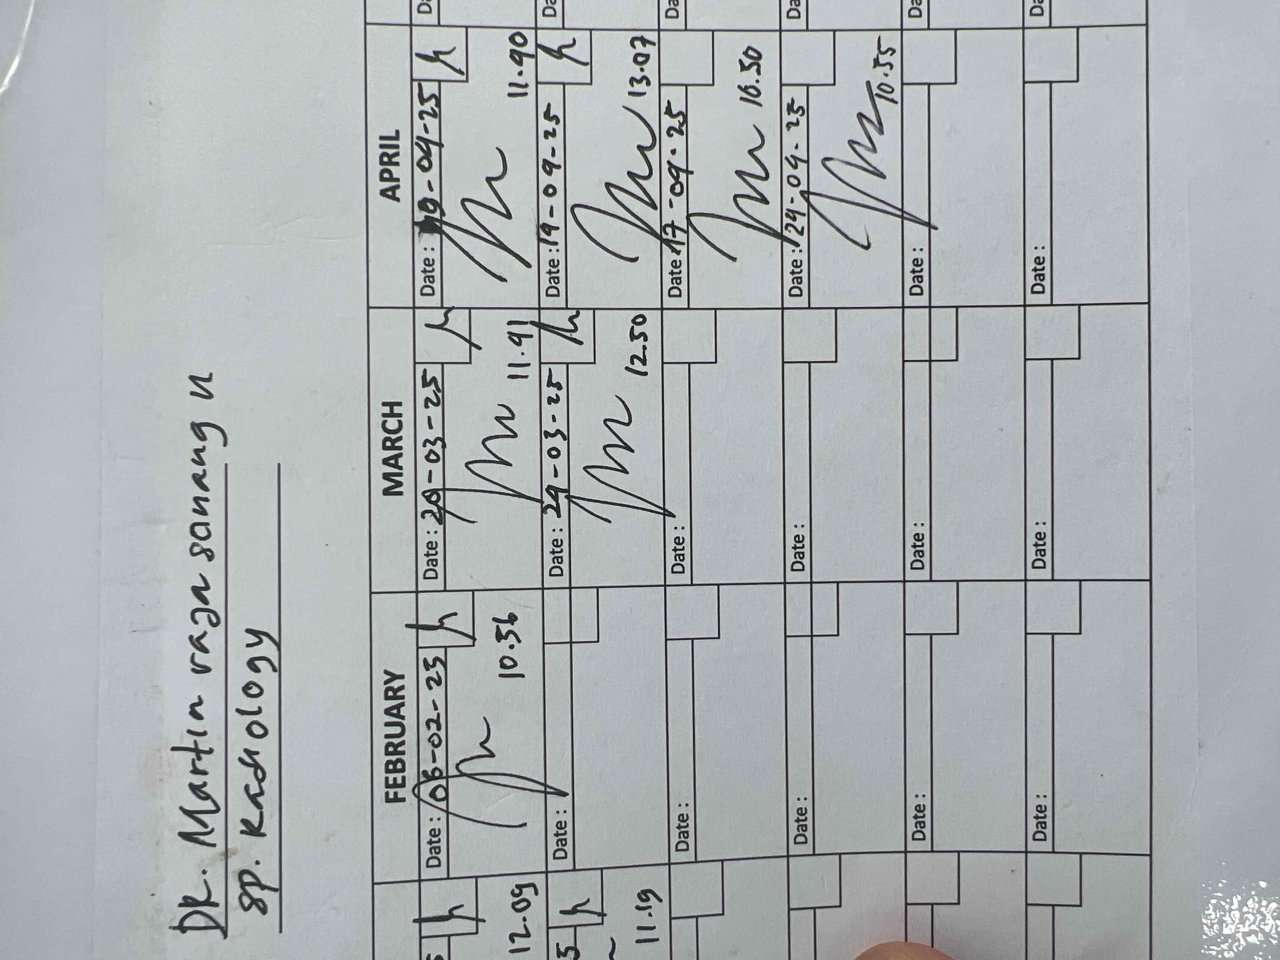 DR. Martin raja sonang n
sp. Radiology
FEBRUARY
MARCH
APRIL
Date : 06-02-25
10.56
Date : 20-03-25
11.41
Date : 09-04-25
11.40
12.09
Date :
Date : 24-03-25
12.50
Date : 14-04-25
13.07
11.19
Date :
Date :
Date : 17-04-25
16.50
Date :
Date :
Date : 24-04-25
10.55
Date :
Date :
Date :
Date :
Date :
Date :